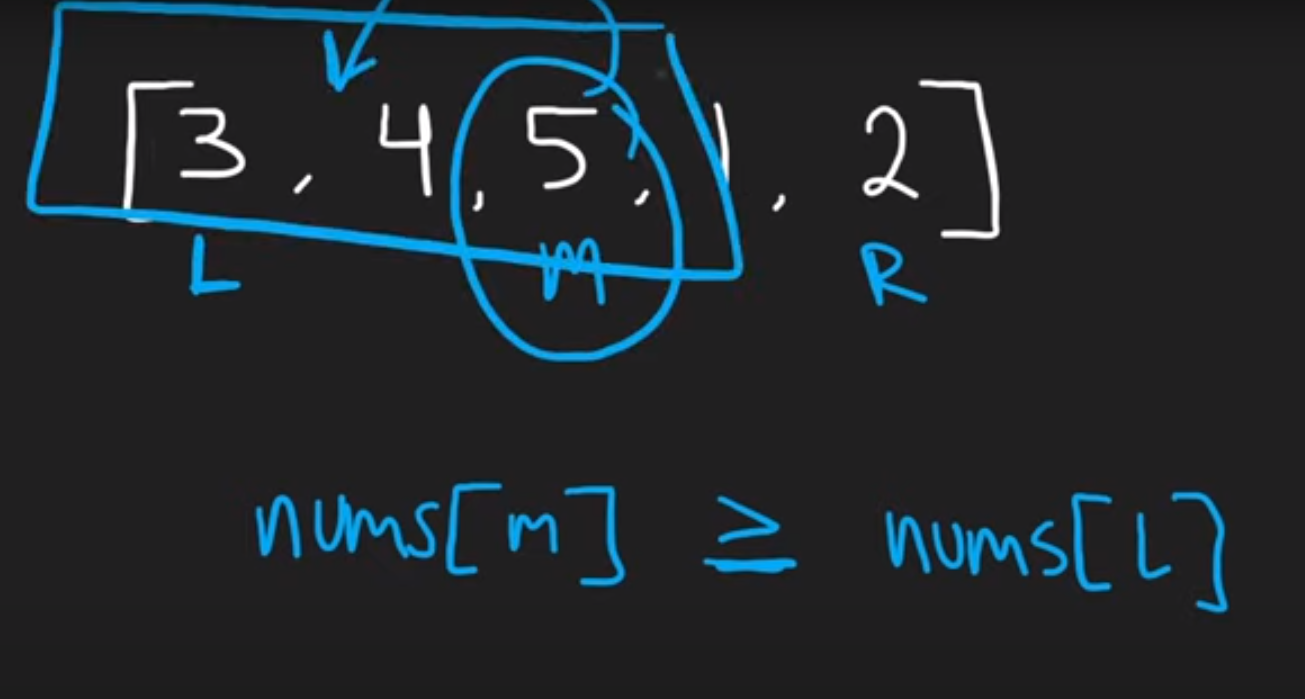 [3, 4, 5, 1, 2]
L m R
nums[m] ≥ nums[L]